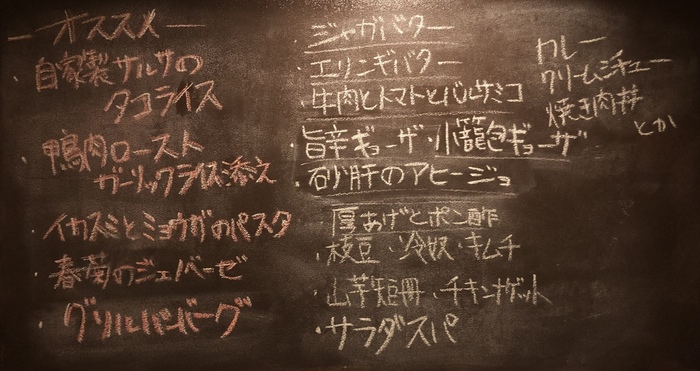 ーオススメー
・自家製サルサの
タコライス
・鴨肉ロースト
ガーリックライス添え
・イカスミとミョウガのパスタ
・春菊のジェノベーゼ
・グリルハンバーグ
・ジャガバター
・エリンギバター
・牛肉とトマトとバルサミコ
・旨辛ギョーザ・小籠包ギョーザ
・砂肝のアヒージョ
・厚あげとポン酢
・枝豆・冷奴・キムチ
・山芋短冊・チキンナゲット
・サラダスパ
カレー
クリームシチュー
焼き肉丼
とか